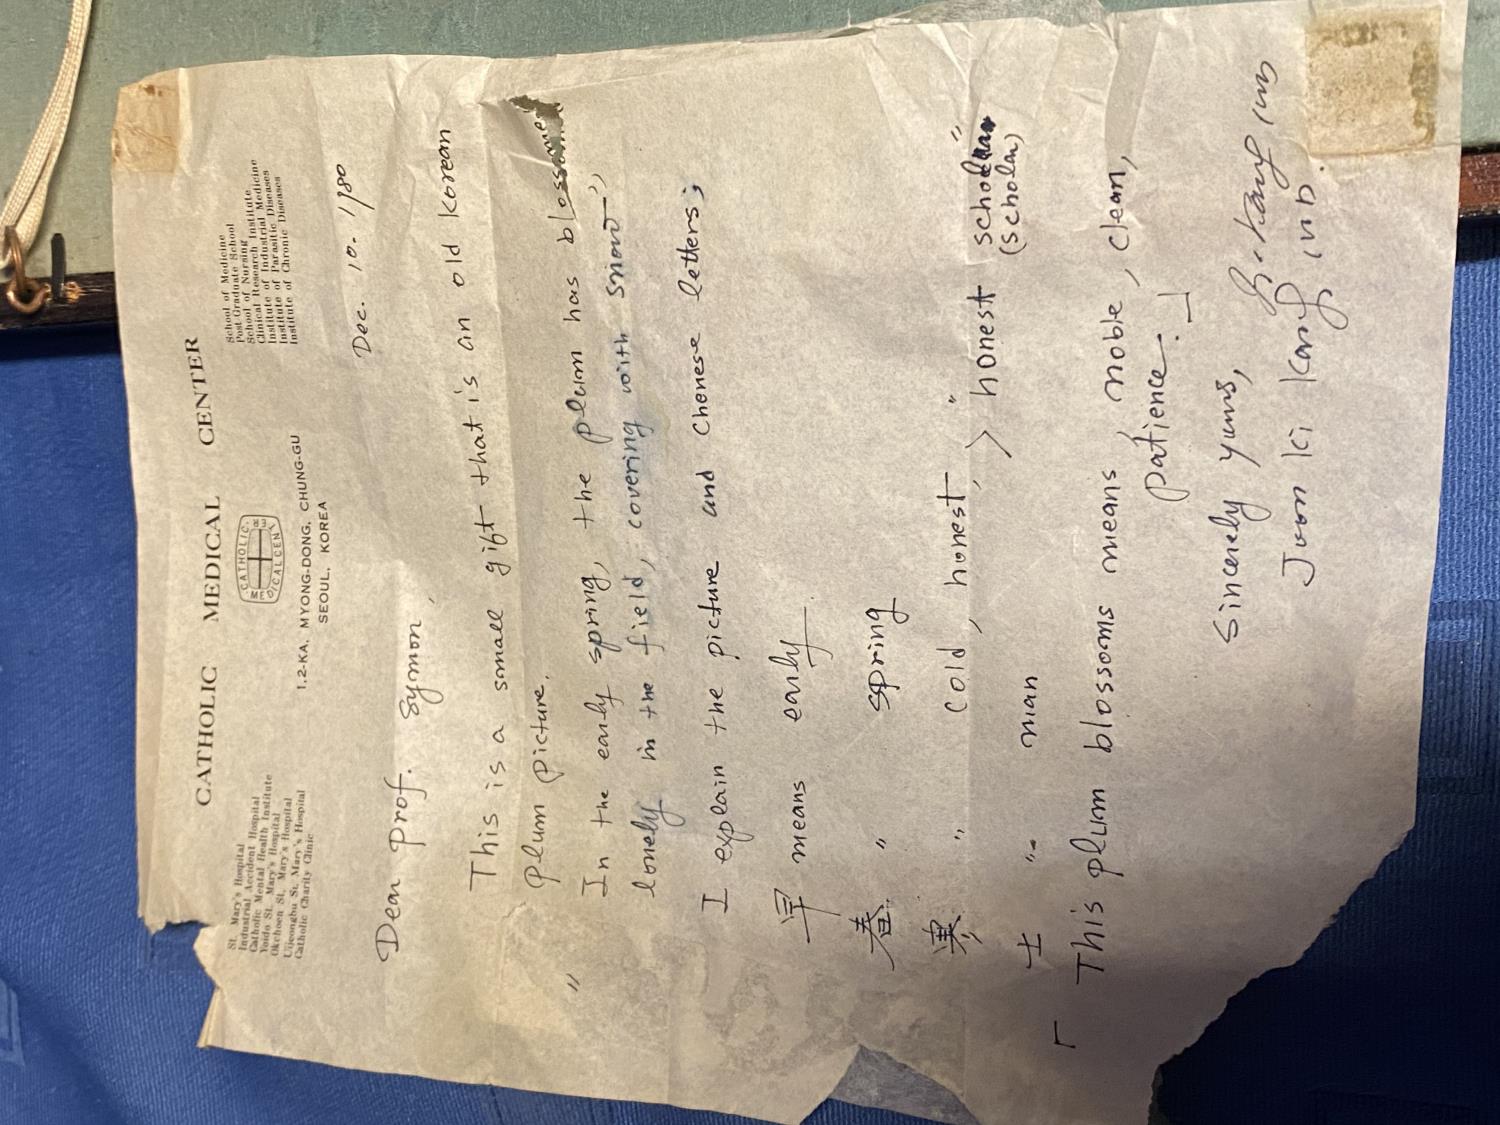 CATHOLIC MEDICAL CENTER
St. Mary's Hospital
Industrial Accident Hospital
Catholic Mental Health Institute
Yoido St. Mary's Hospital
Okcheon St. Mary's Hospital
Uijeongbu St. Mary's Hospital
Catholic Charity Clinic
CATHOLIC
MEDICAL CENTER
1.2-KA, MYONG-DONG, CHUNG-GU
SEOUL, KOREA
School of Medicine
Post Graduate School
School of Nursing
Clinical Research Institute
Institute of Industrial Medicine
Institute of Parasitic Diseases
Institute of Chronic Diseases
Dec. 10. 1980
Dear Prof. Symon,
This is a small gift that is an old Korean
plum picture.
" In the early spring, the plum has blossomes
lonely in the field, covering with snow",
I explain the picture and Chonese letters;
早 means early
春 " spring
寒 " cold, honest, "
士 " man > honest scholar "
(scholar)
「 This plum blossoms means, noble, clean,
patience. 」
Sincerely yours,
Joon Ki Kang, M.D.